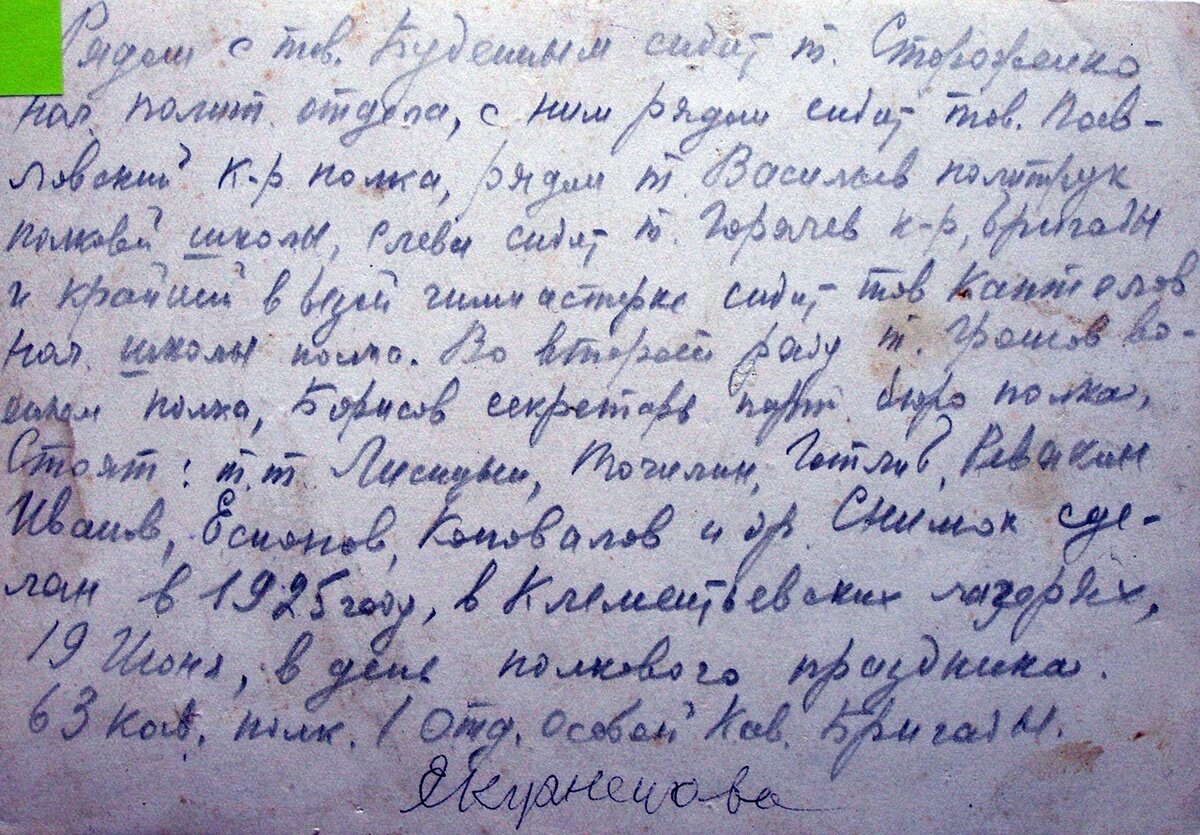 Рядом с тов. Буденным сидит т. Стороженко
нач. полит. отдела, с ним рядом сидит тов. Пав-
ловский к-р полка, рядом т. Васильев политрук
полковой школы, слева сидит т. Горячев к-р, бригады
и крайний в белой гимнастерке сидит тов Кантелов
нач. школы полка. Во втором ряду т. Громов во-
енком полка, Борисов секретарь парт. бюро полка,
Стоят: т.т. Лисицын, Точилин, Готлиб, Ревякин
Иванов, Есионов, Коновалов и др. Снимок сде-
лан в 1925 году, в Клементьевских лагерях,
19 Июня, в день полкового праздника.
63 кав. полк. 1 Отд. Особой Кав. Бригады.
ЯКузнецова